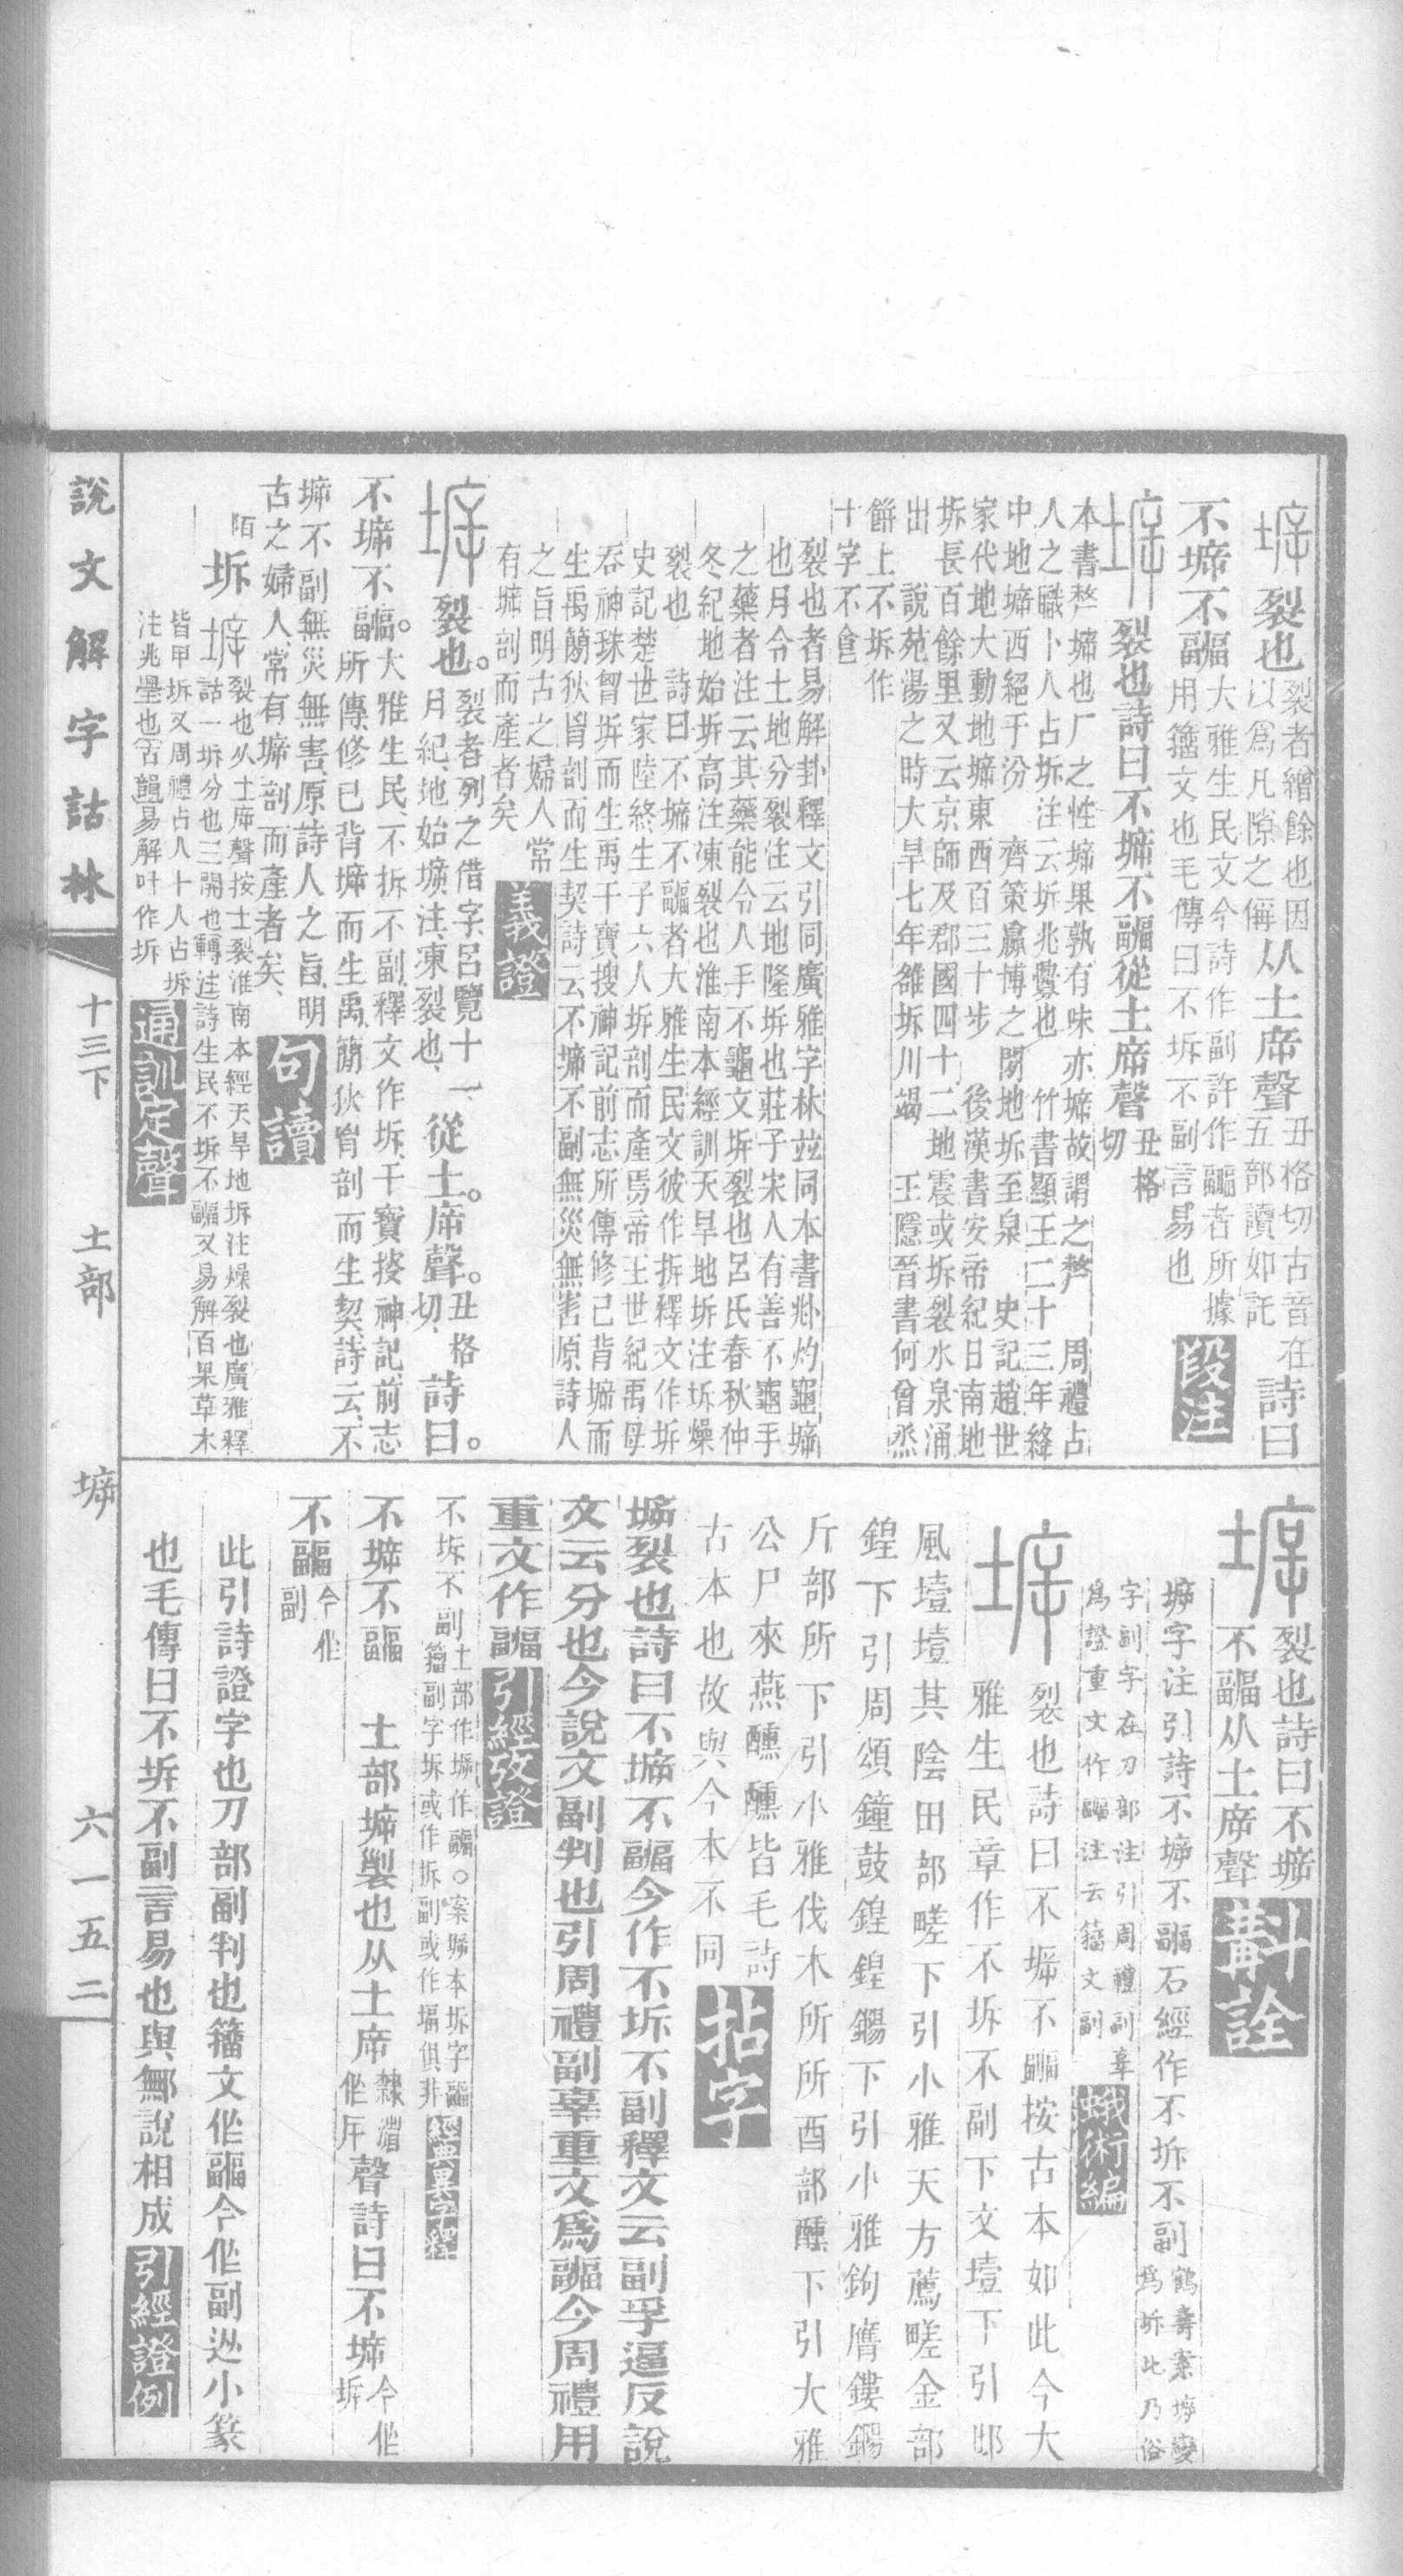 裂也裂者繒餘也因以爲凡隙之偁从土㡿聲丑格切古音在五部讀如託詩曰
不㙤不疈大雅生民文今詩作副許作疈者所據用籒文也毛傳曰不坼不副言易也段注
裂也詩曰不㙤不疈從土㡿聲丑格切
本書㙤也厂之性㙤果孰有味亦㙤故謂之 周禮占
人之職卜人占坼注云坼兆舋也 竹書顯王二十三年絳
中地㙤西絕于汾 齊策嬴博之閒地坼至泉 史記趙世
家代地大動地㙤東西百三十步 後漢書安帝紀日南地
坼長百餘里又云京師及郡國四十二地震或坼裂水泉涌
出 說苑湯之時大旱七年雒坼川竭 王隱晉書何曾烝
餅上不坼作
十字不食
裂也者易解卦釋文引同廣雅字林竝同本書灼龜㙤
也月令土地分裂注云地隆坼也莊子宋人有善不龜手
之藥者注云其藥能令人手不龜文坼裂也呂氏春秋仲
冬紀地始坼高注凍裂也淮南本經訓天旱地坼注坼燥
裂也 詩曰不㙤不疈者大雅生民文彼作拆釋文作坼
史記楚世家陸終生子六人坼剖而產焉帝王世紀禹母
吞神珠胷坼而生禹干寶搜神記前志所傳修己背㙤而
生禹簡狄胷剖而生契詩云不㙤不副無災無害原詩人
之旨明古之婦人常
有㙤剖而產者矣義證
裂也。裂者列之借字、呂覽十一月紀、地始㙤、注、凍裂也、從土。㡿聲。丑格切、詩曰。
不㙤不疈。大雅生民、不拆不副、釋文作坼、干寶搜神記、前志所傳、修已背㙤而生禹、簡狄胷剖而生契、詩云、不
㙤不副、無災無害、原詩人之旨、明古之婦人、常有㙤剖而產者矣、句讀
坼 裂也从土㡿聲按土裂淮南本經天旱地坼注燥裂也廣雅釋詁一坼分也三開也轉注詩生民不坼不疈又易解百果草木
皆甲坼又周禮占人卜人占坼注兆舋也古韻易解叶作坼陌通訓定聲
說文解字詁林 十三下 土部 㙤 六一五二
裂也詩曰不㙤
不疈从土㡿聲斠詮
㙤字注引詩不㙤不疈石經作不坼不副鶴壽案㙤變爲坼此乃俗
字副字在刀部注引周禮副辜爲證重文作疈注云籒文副蛾術編
裂也詩曰不㙤不疈按古本如此今大
雅生民章作不坼不副下文壇下引邶
風壇壇其陰田部㽨下引小雅天方薦㽨金部
鍠下引周頌鐘鼓鍠鍠鍚下引小雅鉤膺鏤鍚
斤部所下引小雅伐木所所酉部醺下引大雅
公尸來燕醺醺皆毛詩
古本也故與今本不同拈字
㙤裂也詩曰不㙤不疈今作不坼不副釋文云副孚逼反說
文云分也今說文副判也引周禮副辜重文爲疈今周禮用
重文作疈引經攷證
不坼不副土部作㙤作疈。案㙤本坼字疈籒副字坼或作拆副或作堛俱非經典異字釋
不㙤不疈 土部㙤製也从土㡿隸淆作斥聲詩曰不㙤今作坼
不疈今作副
此引詩證字也刀部副判也籒文作疈今作副从小篆
也毛傳曰不坼不副言易也與鄦說相成引經證例